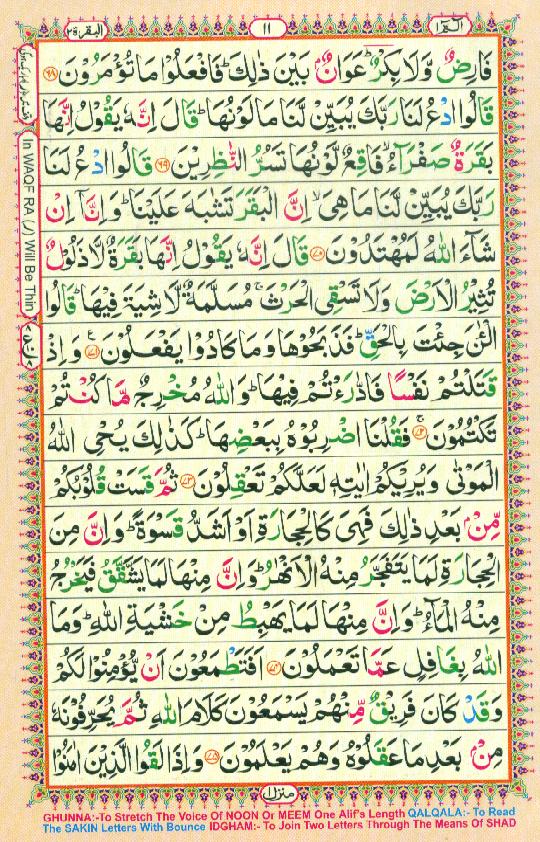 الٓمّٓ ١
١١
البقرة ٢
فَارِضٌ وَّلَا بِكْرٌ ؕ عَوَانٌۢ بَيْنَ ذٰلِكَ ؕ فَافْعَلُوْا مَا تُؤْمَرُوْنَ ﴿۶۸﴾
قَالُوا ادْعُ لَنَا رَبَّكَ يُبَيِّنْ لَّنَا مَا لَوْنُهَا ؕ قَالَ اِنَّهٗ يَقُوْلُ اِنَّهَا
بَقَرَةٌ صَفْرَآءُ ۙ فَاقِعٌ لَّوْنُهَا تَسُرُّ النّٰظِرِيْنَ ﴿۶۹﴾ قَالُوا ادْعُ لَنَا
رَبَّكَ يُبَيِّنْ لَّنَا مَا هِىَ ۙ اِنَّ الْبَقَرَ تَشٰبَهَ عَلَيْنَا ؕ وَاِنَّاۤ اِنْ
شَآءَ اللّٰهُ لَمُهْتَدُوْنَ ﴿۷۰﴾ قَالَ اِنَّهٗ يَقُوْلُ اِنَّهَا بَقَرَةٌ لَّا ذَلُوْلٌ
تُثِيْرُ الْاَرْضَ وَلَا تَسْقِى الْحَرْثَ ۚ مُسَلَّمَةٌ لَّا شِيَةَ فِيْهَا ؕ قَالُوا
الْـٰٔنَ جِئْتَ بِالْحَقِّ ؕ فَذَبَحُوْهَا وَمَا كَادُوْا يَفْعَلُوْنَ ﴿۷۱﴾ وَاِذْ
قَتَلْتُمْ نَفْسًا فَادّٰرَءْتُمْ فِيْهَا ؕ وَاللّٰهُ مُخْرِجٌ مَّا كُنْتُمْ
تَكْتُمُوْنَ ﴿۷۲﴾ فَقُلْنَا اضْرِبُوْهُ بِبَعْضِهَا ؕ كَذٰلِكَ يُحْىِ اللّٰهُ
الْمَوْتٰى وَيُرِيْكُمْ اٰيٰتِهٖ لَعَلَّكُمْ تَعْقِلُوْنَ ﴿۷۳﴾ ثُمَّ قَسَتْ قُلُوْبُكُمْ
مِّنْۢ بَعْدِ ذٰلِكَ فَهِىَ كَالْحِجَارَةِ اَوْ اَشَدُّ قَسْوَةً ؕ وَاِنَّ مِنَ
الْحِجَارَةِ لَمَا يَتَفَجَّرُ مِنْهُ الْاَنْهٰرُ ؕ وَاِنَّ مِنْهَا لَمَا يَشَّقَّقُ فَيَخْرُجُ
مِنْهُ الْمَآءُ ؕ وَاِنَّ مِنْهَا لَمَا يَهْبِطُ مِنْ خَشْيَةِ اللّٰهِ ؕ وَمَا
اللّٰهُ بِغَافِلٍ عَمَّا تَعْمَلُوْنَ ﴿۷۴﴾ اَفَتَطْمَعُوْنَ اَنْ يُّؤْمِنُوْا لَكُمْ
وَقَدْ كَانَ فَرِيْقٌ مِّنْهُمْ يَسْمَعُوْنَ كَلَامَ اللّٰهِ ثُمَّ يُحَرِّفُوْنَهٗ
مِنْۢ بَعْدِ مَا عَقَلُوْهُ وَهُمْ يَعْلَمُوْنَ ﴿۷۵﴾ وَاِذَا لَقُوا الَّذِيْنَ اٰمَنُوْا
In WAQF RA (ر) Will Be Thin
منزل ١
GHUNNA:-To Stretch The Voice Of NOON Or MEEM One Alif's Length QALQALA:- To Read
The SAKIN Letters With Bounce IDGHAM:- To Join Two Letters Through The Means Of SHAD